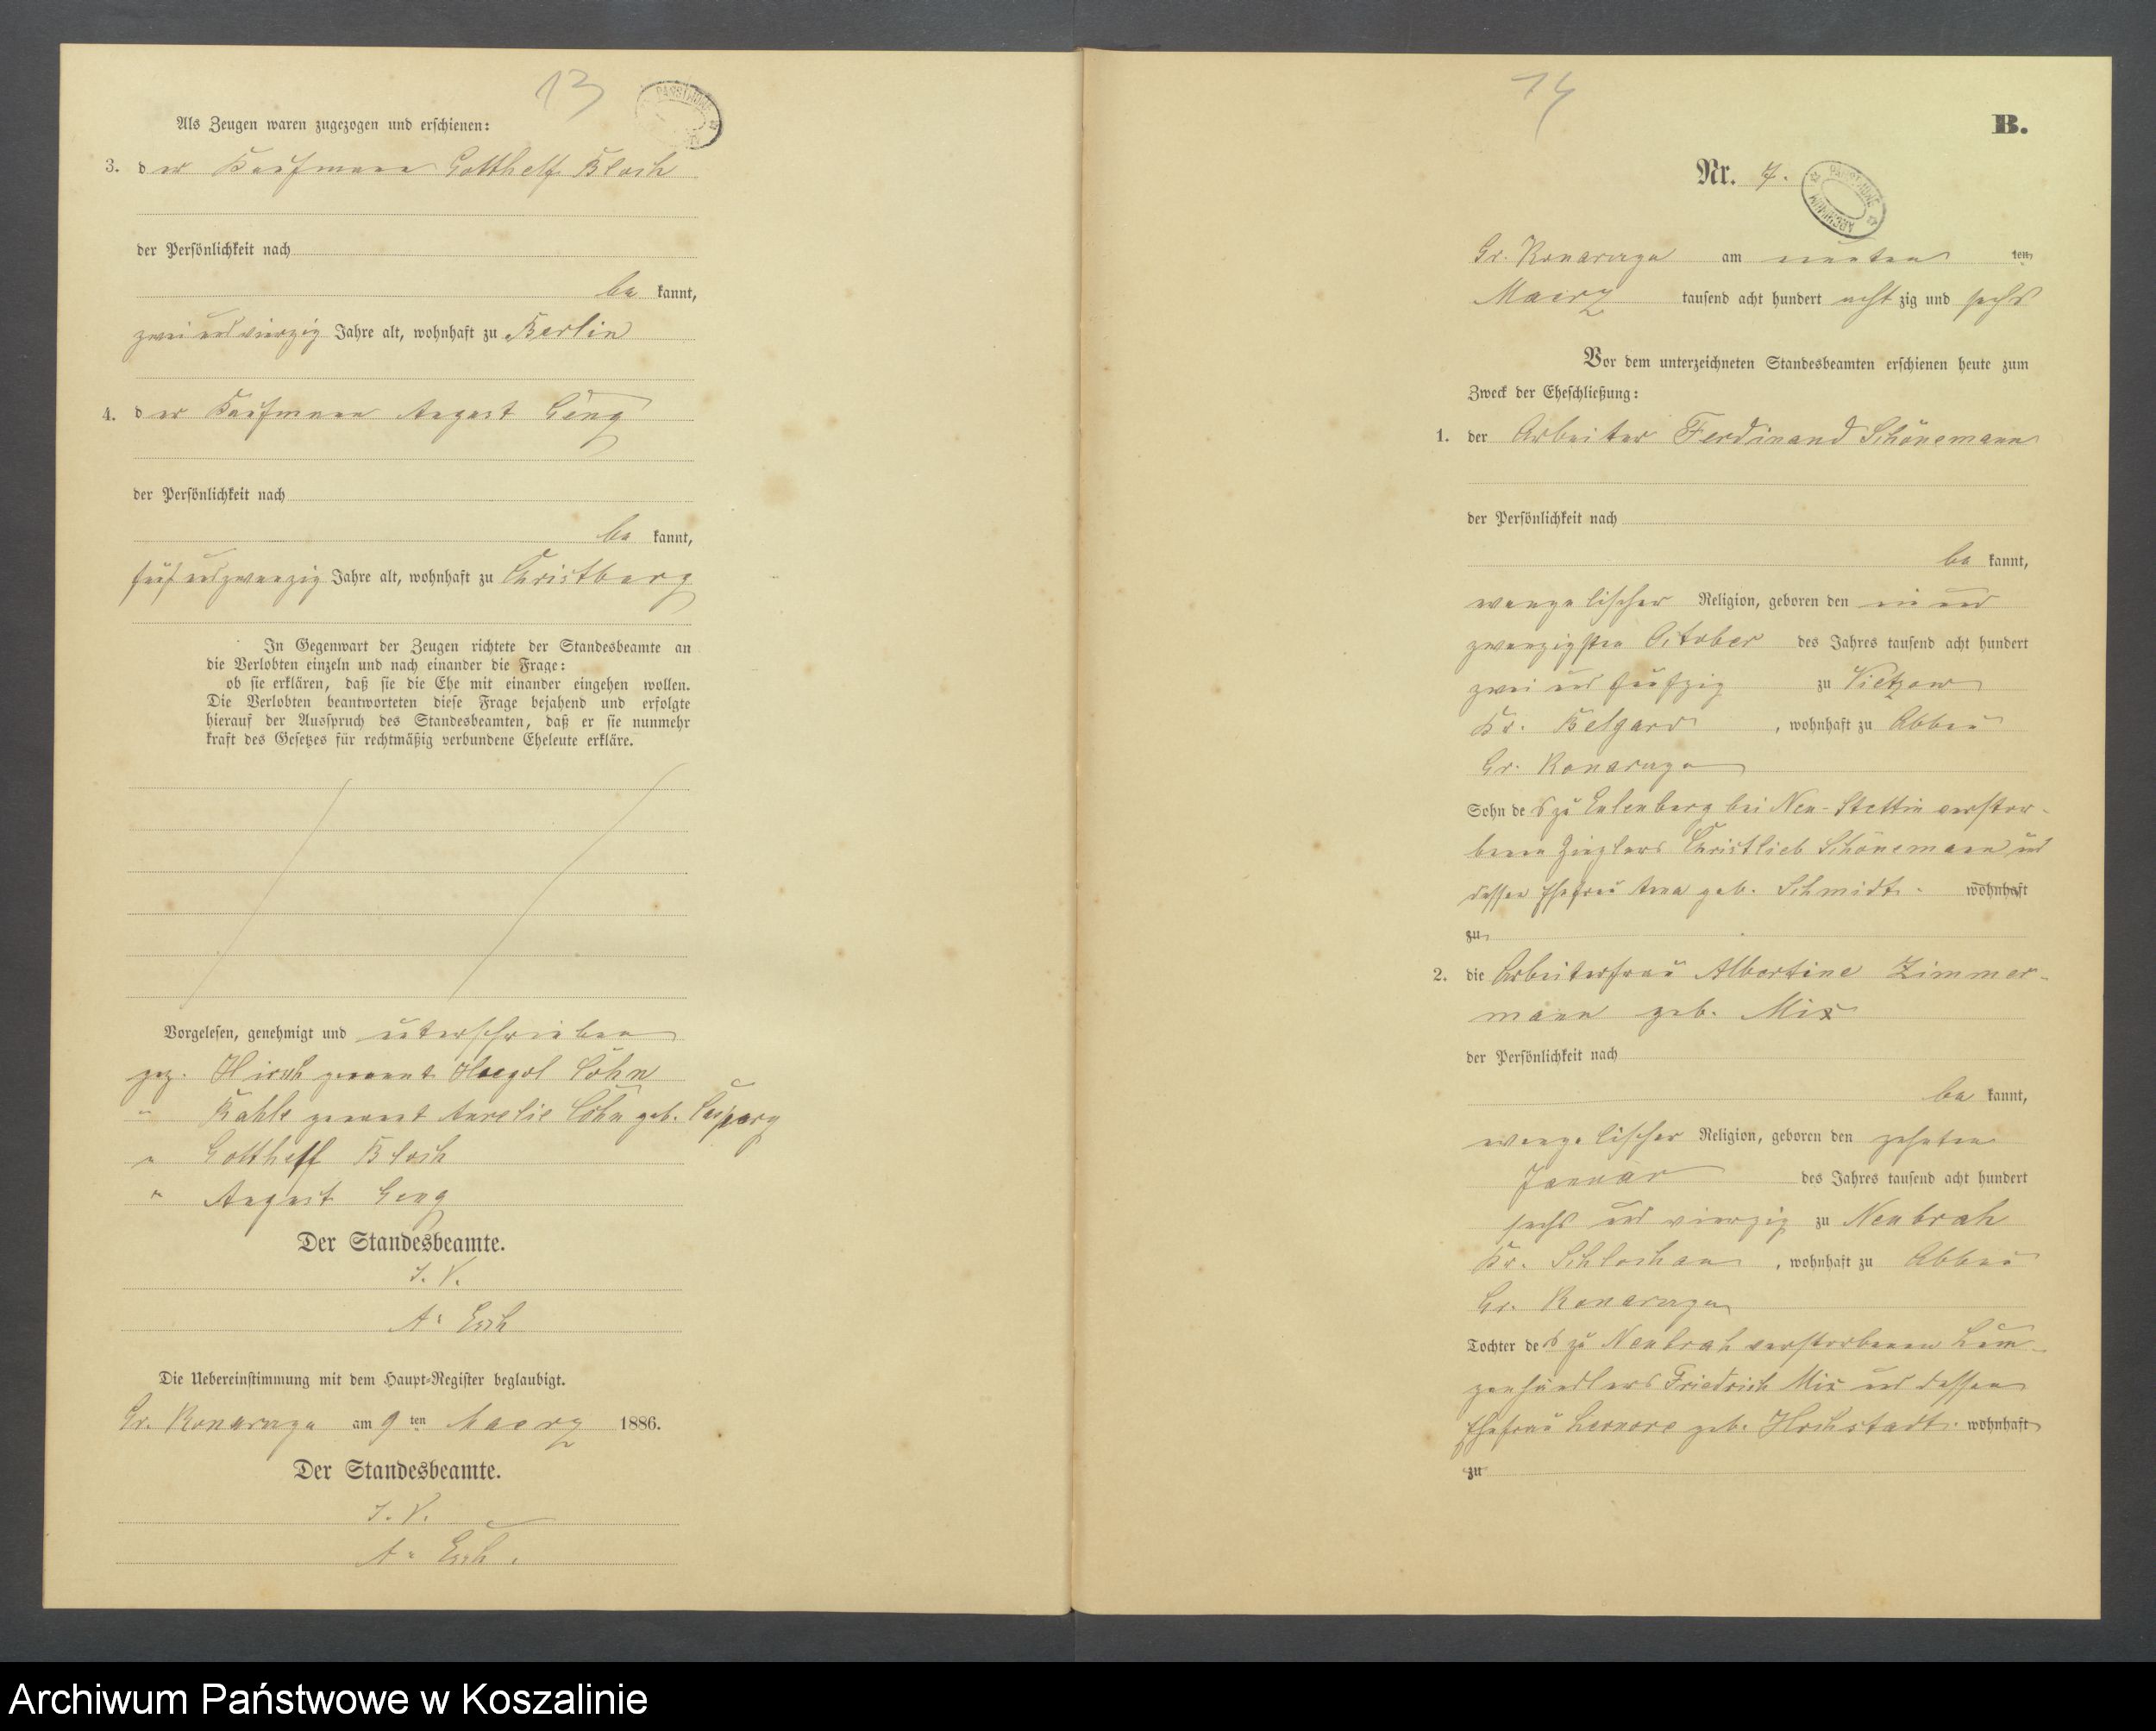 13
Als Zeugen waren zugezogen und erschienen:
3. der Kaufmann Gotthelf Bloch
der Persönlichkeit nach
be kannt,
zwei und vierzig Jahre alt, wohnhaft zu Berlin
4. der Kaufmann August Geng
der Persönlichkeit nach
be kannt,
fünf und zwanzig Jahre alt, wohnhaft zu Christburg
In Gegenwart der Zeugen richtete der Standesbeamte an
die Verlobten einzeln und nach einander die Frage:
ob sie erklären, daß sie die Ehe mit einander eingehen wollen.
Die Verlobten beantworteten diese Frage bejahend und erfolgte
hierauf der Ausspruch des Standesbeamten, daß er sie nunmehr
kraft des Gesetzes für rechtmäßig verbundene Eheleute erkläre.
Vorgelesen, genehmigt und unterschrieben
gez. Hirsch genannt Cohn
" genannt Aurelie Cohn geb. Caspary
" Gotthelf Bloch
" August Geng
Der Standesbeamte.
I. V.
A.
Die Uebereinstimmung mit dem Haupt-Register beglaubigt.
Gr. Konarczyn am 9 ten Maerz 1886.
Der Standesbeamte.
I. V.
A.
14
B.
Nr. 7.
Gr. Konarczyn am neunten ten
Maerz tausend acht hundert acht zig und sechs
Vor dem unterzeichneten Standesbeamten erschienen heute zum
Zweck der Eheschließung:
1. der Arbeiter Ferdinand Schönemann
der Persönlichkeit nach
be kannt,
evangelischer Religion, geboren den ein und
zwanzigsten October des Jahres tausend acht hundert
zwei und fünfzig zu Vietzow
Kr. Belgard, wohnhaft zu Abbau
Gr. Konarczyn
Sohn des zu Eulenburg bei Neu-Stettin verstor-
benen Zieglers Christlieb Schönemann und
dessen Ehefrau Anna geb. Schmidt. wohnhaft
zu
2. die Arbeiterfrau Albertine Zimmer-
mann geb. Mix
der Persönlichkeit nach
be kannt,
evangelischer Religion, geboren den zehnten
Januar des Jahres tausend acht hundert
sechs und vierzig zu Neubrah
Kr. Schlochau, wohnhaft zu Abbau
Gr. Konarczyn
Tochter des zu Neubrah verstorbenen Lum-
penhändlers Friedrich Mix und dessen
Ehefrau Lernore geb. Hochstadt. wohnhaft
zu
Archiwum Państwowe w Koszalinie